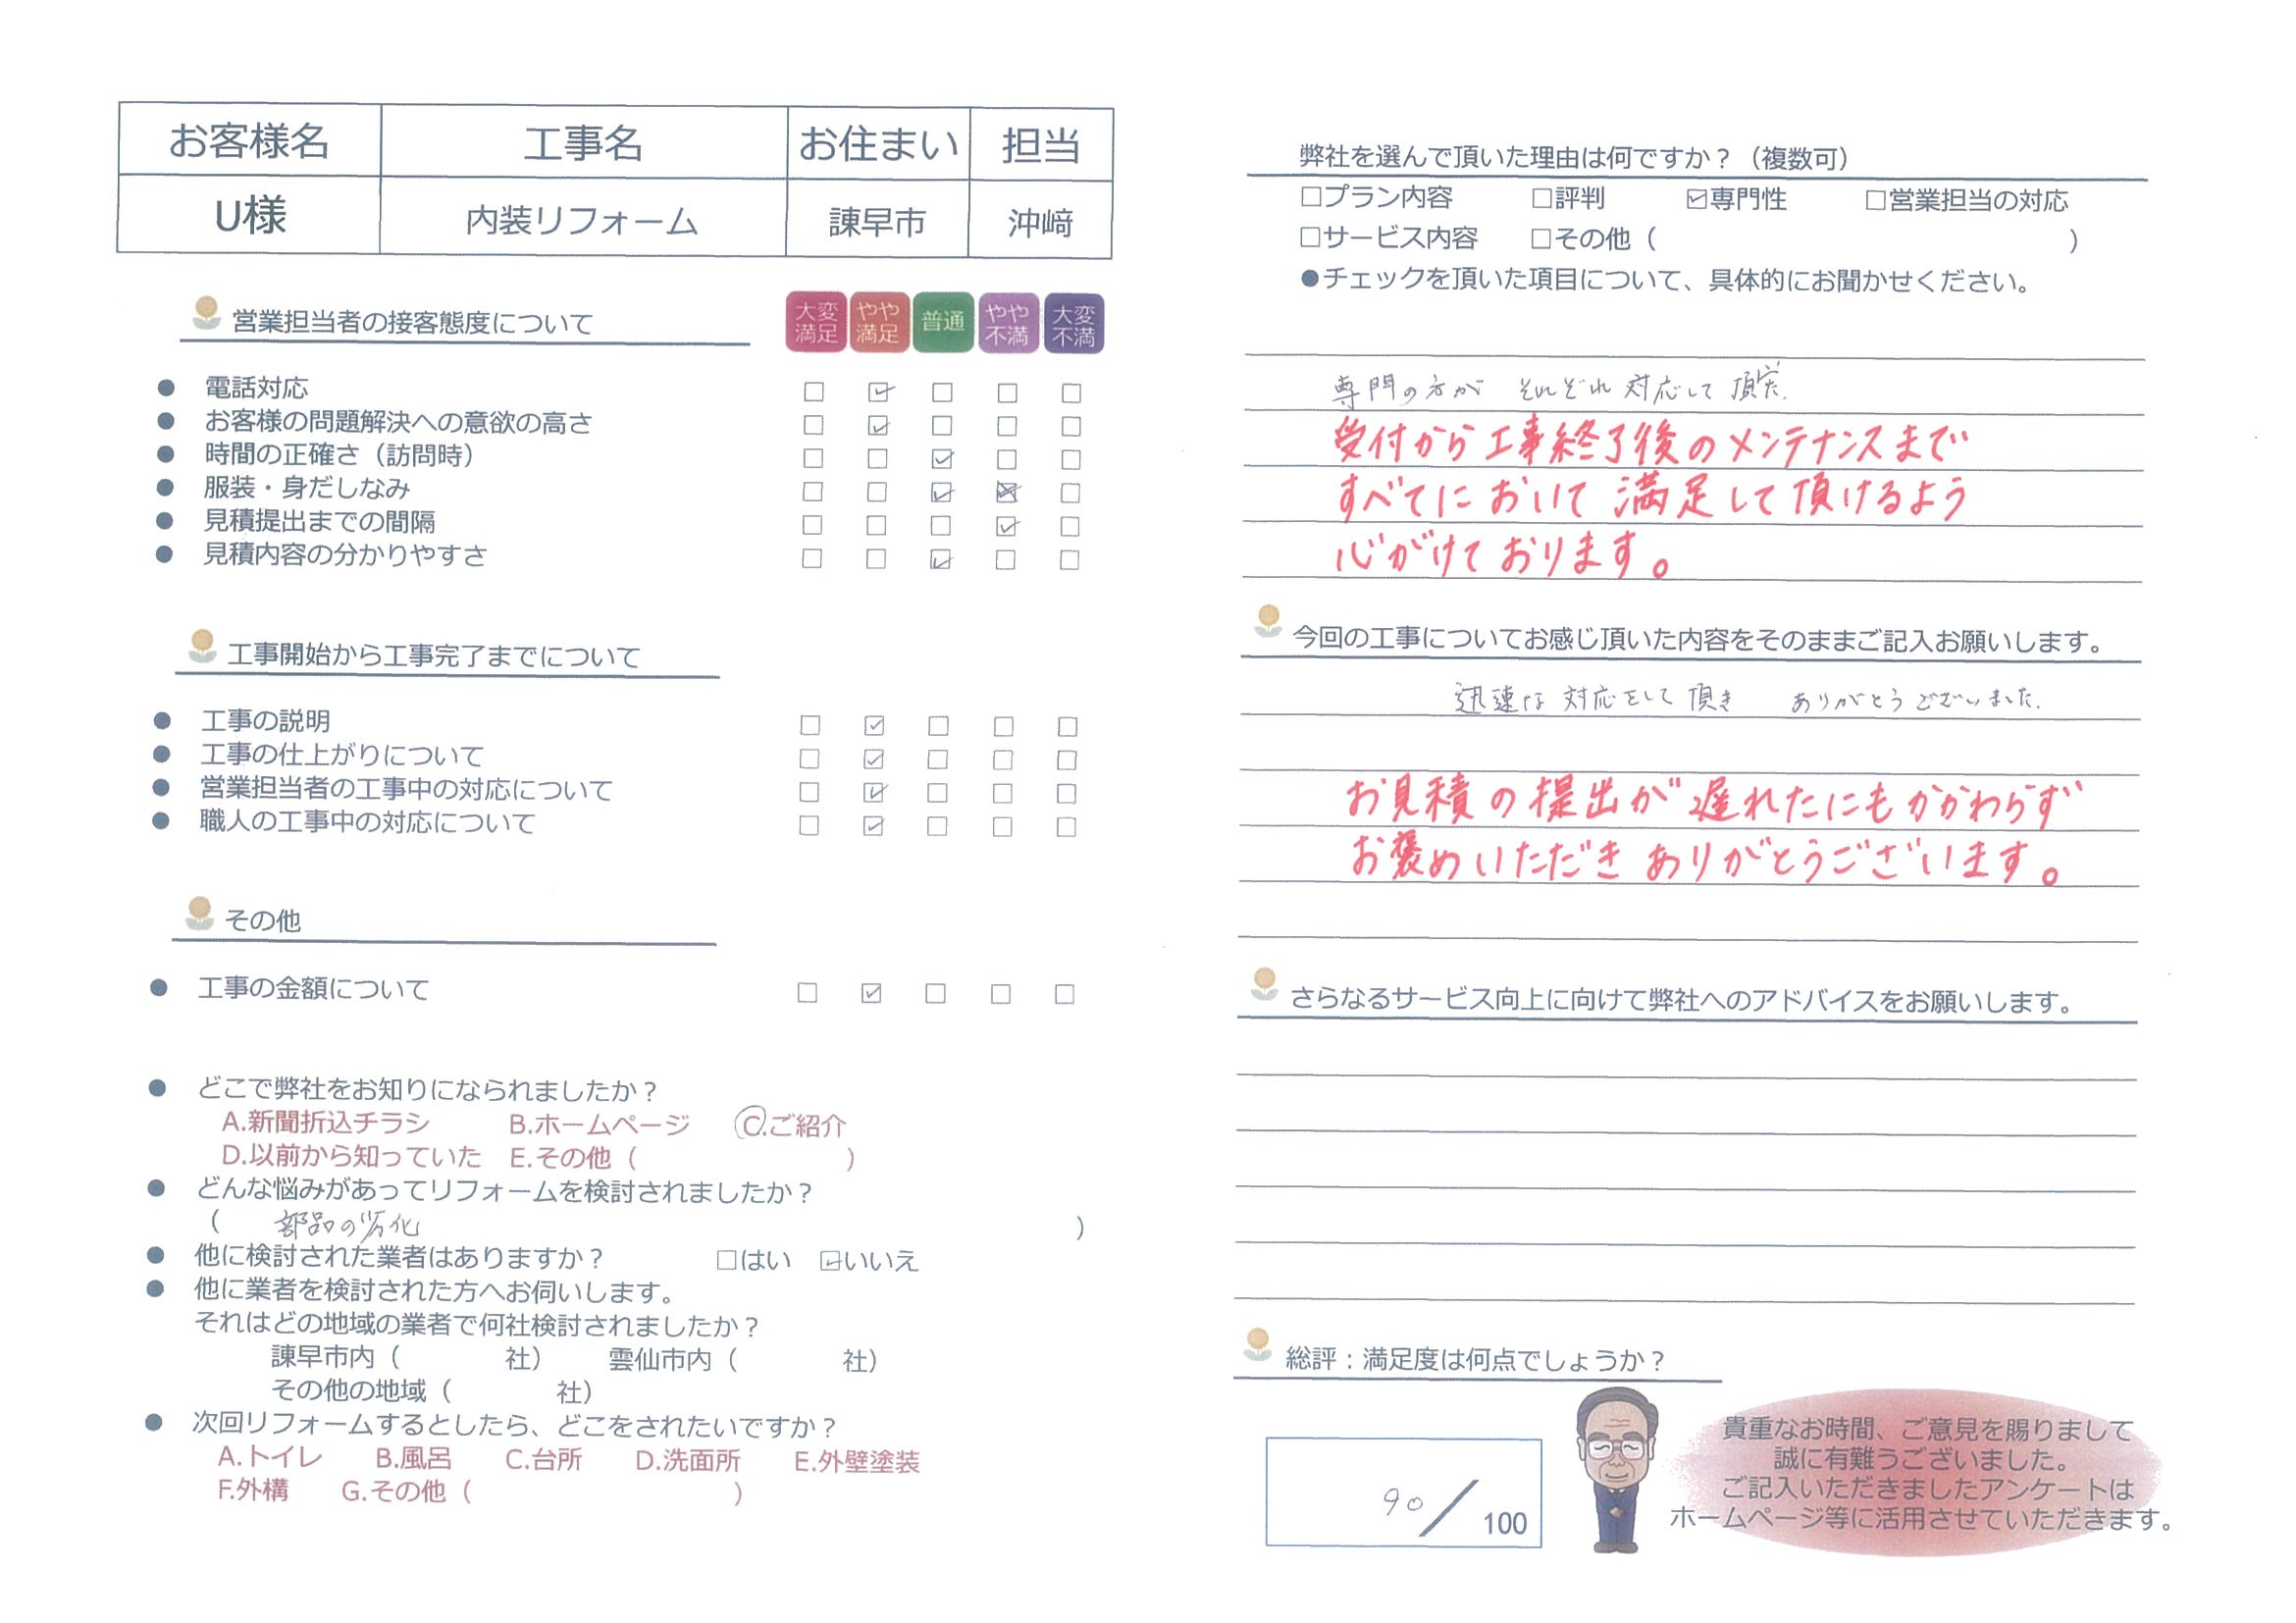 お客様名 工事名 お住まい 担当
U様 内装リフォーム 諫早市 沖﨑
営業担当者の接客態度について 大変満足 やや満足 普通 やや不満 大変不満
● 電話対応 □ ☑ □ □ □
● お客様の問題解決への意欲の高さ □ ☑ □ □ □
● 時間の正確さ（訪問時） □ □ ☑ □ □
● 服装・身だしなみ □ □ ☑ ☒ □
● 見積提出までの間隔 □ □ □ ☑ □
● 見積内容の分かりやすさ □ □ ☑ □ □
工事開始から工事完了までについて
● 工事の説明 □ ☑ □ □ □
● 工事の仕上がりについて □ ☑ □ □ □
● 営業担当者の工事中の対応について □ ☑ □ □ □
● 職人の工事中の対応について □ ☑ □ □ □
その他
● 工事の金額について □ ☑ □ □ □
● どこで弊社をお知りになられましたか？
A.新聞折込チラシ B.ホームページ C.ご紹介
D.以前から知っていた E.その他（ ）
● どんな悩みがあってリフォームを検討されましたか？
（ 部品の劣化 ）
● 他に検討された業者はありますか？ □はい ☑いいえ
● 他に業者を検討された方へお伺いします。
それはどの地域の業者で何社検討されましたか？
諫早市内（ 社） 雲仙市内（ 社）
その他の地域（ 社）
● 次回リフォームするとしたら、どこをされたいですか？
A.トイレ B.風呂 C.台所 D.洗面所 E.外壁塗装
F.外構 G.その他（ ）
弊社を選んで頂いた理由は何ですか？（複数可）
□プラン内容 □評判 ☑専門性 □営業担当の対応
□サービス内容 □その他（ ）
●チェックを頂いた項目について、具体的にお聞かせください。
専門の方が それぞれ 対応して 頂いた.
受付から工事終了後のメンテナンスまで
すべてにおいて 満足して頂けるよう
心がけております。
今回の工事についてお感じ頂いた内容をそのままご記入お願いします。
迅速な 対応をして 頂き ありがとうございました.
お見積の提出が遅れたにもかかわらず
お褒めいただき ありがとうございます。
さらなるサービス向上に向けて弊社へのアドバイスをお願いします。
総評：満足度は何点でしょうか？
90／100
貴重なお時間、ご意見を賜りまして
誠に有難うございました。
ご記入いただきましたアンケートは
ホームページ等に活用させていただきます。